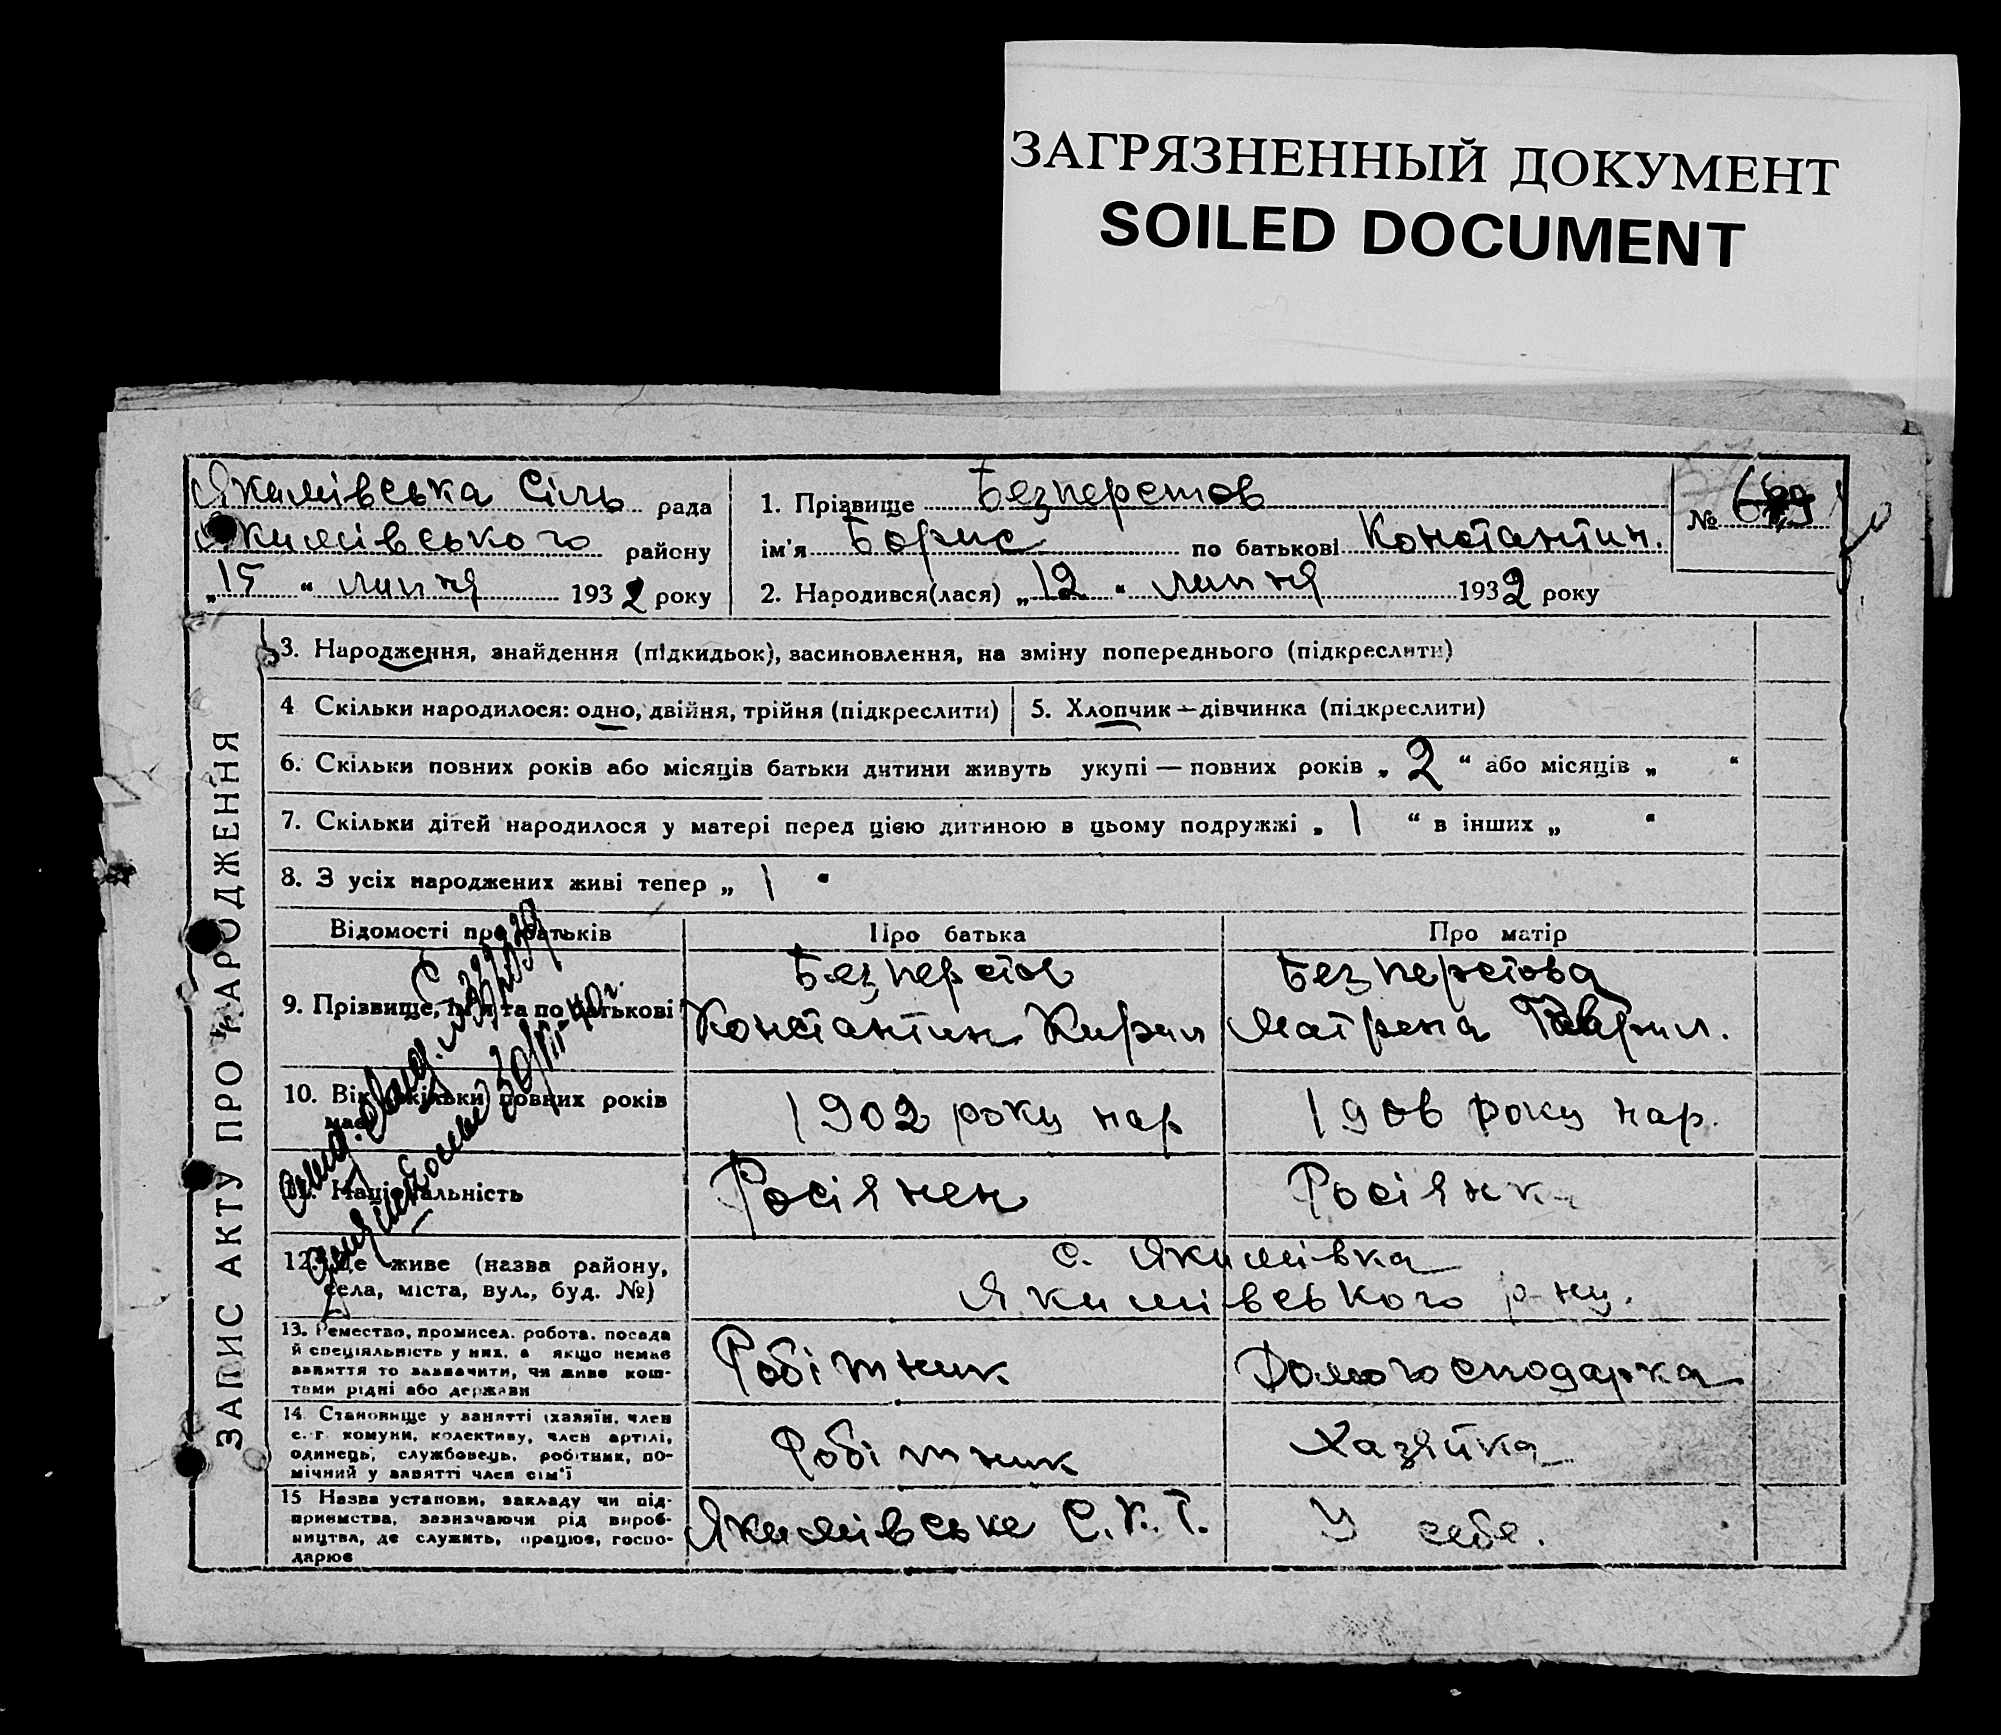 ЗАГРЯЗНЕННЫЙ ДОКУМЕНТ
SOILED DOCUMENT
Якимівська Сіль рада
Якимівського району
„15“ липня 1932 року
1. Прізвище Безперстов
ім'я Борис по батькові Константин.
2. Народився(лася) „12“ липня 1932 року
№
ЗАПИС АКТУ ПРО НАРОДЖЕННЯ
3. Народження, знайдення (підкидьок), засиновлення, на зміну попереднього (підкреслити)
4 Скільки народилося: одно, двійня, трійня (підкреслити)
5. Хлопчик — дівчинка (підкреслити)
6. Скільки повних років або місяців батьки дитини живуть укупі — повних років „2“ або місяців „ “
7. Скільки дітей народилося у матері перед цією дитиною в цьому подружжі „1“ в інших „ “
8. З усіх народжених живі тепер „1“
Відомості про батьків Про батька Про матір
9. Прізвище, ім'я та по батькові
Безперстов
Константин Кирил
Безперстова
Матрена Гаврил.
10. Вік (скільки повних років
має)
1902 року нар
1906 року нар.
11. Національність
Росіянен
Росіянка
12. Де живе (назва району,
села, міста, вул., буд. №)
с. Якимівка
Якимівського р-ну.
13. Ремество, промисел, робота, посада
й спеціяльність у них, а якщо немає
заняття то зазначити, чи живе кош-
тами рідні або держави
Робітник
Домогосподарка
14. Становище у занятті (хазяїн, член
с.-г. комуни, колективу, член артілі,
одинець, службовець, робітник, по-
мічний у занятті член сім'ї
Робітник
Хазяйка
15 Назва установи, закладу чи під-
приємства, зазначаючи рід вироб-
ництва, де служить, працює, госпо-
дарює
Якимівське С.К.Т.
У себе.